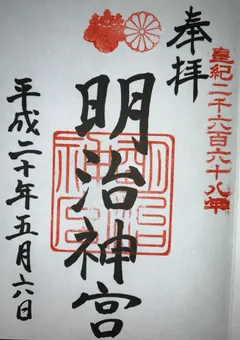 皇紀二千六百六十八年
奉拝
明治神宮
明治神宮
平成二十年五月六日